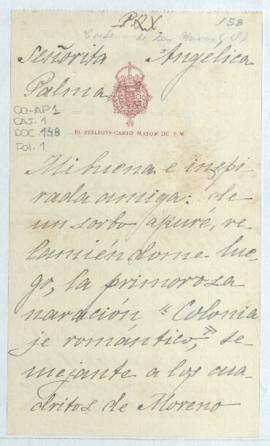 158
Señorita Angélica
Palma
CO-AP1
CAJ. 1
DOC 148
Fol. 1
EL BIBLIOTECARIO MAYOR DE S. M.
Mi buena e inspi
rada amiga: de
un sorbo apuré, re
lamiéndome lue
go, la primorosa
narración "Colonia
je romántico," se
mejante a los cua
dritos de Moreno